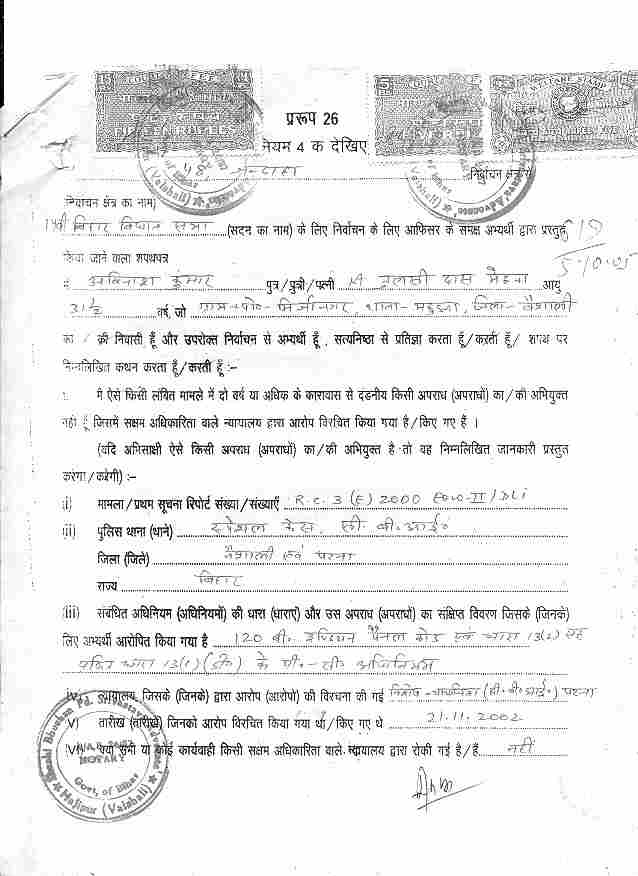 COURT FEE
प्ररूप 26
नियम 4 क देखिए
निर्वाचन क्षेत्र से
(निर्वाचन क्षेत्र का नाम)
बिहार विधान सभा (सदन का नाम) के लिए निर्वाचन के लिए आफिसर के समक्ष अभ्यर्थी द्वारा प्रस्तुत
5-10-05
किया जाने वाला शपथपत्र
मैं अविनाश कुमार पुत्र/पुत्री/पत्नी तुलसी दास मेहता आयु
31½ वर्ष, जो ग्राम+पो०- मिर्जानगर, थाना- महुआ, जिला- वैशाली
का / की निवासी हूँ और उपरोक्त निर्वाचन से अभ्यर्थी हूँ, सत्यनिष्ठा से प्रतिज्ञा करता हूँ/करती हूँ/ शपथ पर
निम्नलिखित कथन करता हूँ/करती हूँ :-
मैं ऐसे किसी लंबित मामले में दो वर्ष या अधिक के कारावास से दंडनीय किसी अपराध (अपराधों) का/की अभियुक्त
नहीं हूँ जिसमें सक्षम अधिकारिता वाले न्यायालय द्वारा आरोप विरचित किया गया है/किए गए हैं ।
(यदि अभिसाक्षी ऐसे किसी अपराध (अपराधों) का/की अभियुक्त है तो वह निम्नलिखित जानकारी प्रस्तुत
करेगा/करेगी) :-
(i) मामला/प्रथम सूचना रिपोर्ट संख्या/संख्याएँ R.C. 3 (E) 2000 EOW-II/DLI
(ii) पुलिस थाना (थाने) स्पेशल केस, सी० बी० आई०
जिला (जिले) वैशाली एवं पटना
राज्य बिहार
(iii) संबंधित अधिनियम (अधिनियमों) की धारा (धाराएँ) और उस अपराध (अपराधों) का संक्षिप्त विवरण जिसके (जिनके)
लिए अभ्यर्थी आरोपित किया गया है 120 बी० इण्डियन पैनल कोड एवं धारा 13(2) सह
पठित धारा 13(1)(डी०) के पी०-सी० अधिनियम
iv) न्यायालय, जिसके (जिनके) द्वारा आरोप (आरोपों) की विरचना की गई विशेष न्यायाधीश (सी. बी. आई०) पटना
v) तारीख (तारीखें) जिनको आरोप विरचित किया गया था/किए गए थे 21.11.2002
vi) क्या सभी या कोई कार्यवाही किसी सक्षम अधिकारिता वाले न्यायालय द्वारा रोकी गई है/हैं नहीं
NOTARY
Govt. of Bihar
Hajipur (Vaishali)